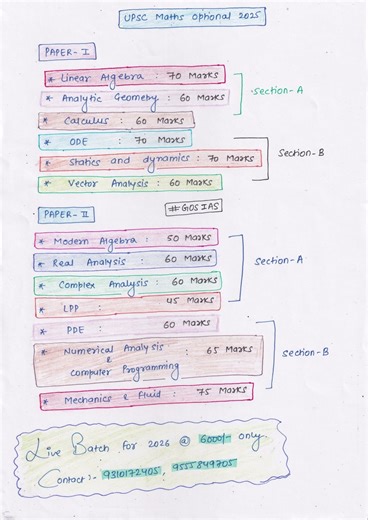 UPSC Maths Optional 2025
PAPER - I
* Linear Algebra : 70 Marks
* Analytic Geometry : 60 Marks
Section - A
* Calculus : 60 Marks
* ODE : 70 Marks
* Statics and dynamics : 70 Marks
Section - B
* Vector Analysis : 60 Marks
PAPER - II
#GOSIAS
* Modern Algebra : 50 Marks
* Real Analysis : 60 Marks
Section - A
* Complex Analysis : 60 Marks
* LPP : 45 Marks
* PDE : 60 Marks
* Numerical Analysis : 65 Marks
&
Computer Programming
Section - B
* Mechanics & Fluid : 75 Marks
Live Batch for 2026 @ 6000/- only.
Contact :- 9310172405, 9555849705